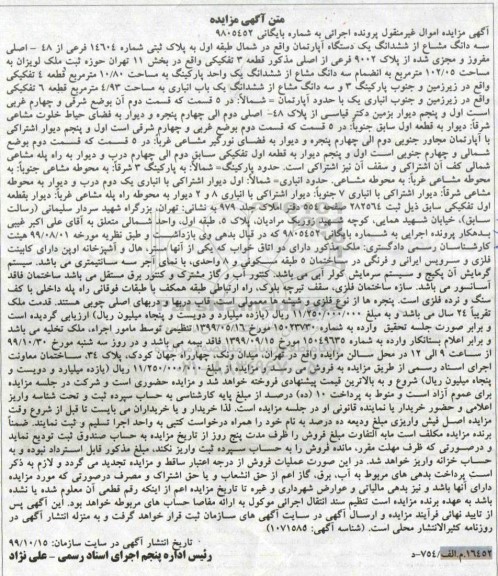 متن آگهی مزایده
آگهی مزایده اموال غیرمنقول پرونده اجرائی به شماره بایگانی ۹۸۰۵۴۵۲
سه دانگ مشاع از ششدانگ یک دستگاه آپارتمان واقع در شمال طبقه اول به پلاک ثبتی شماره ۱۴۶۰۴ فرعی از ۴۸ - اصلی
مفروز و مجزی شده از پلاک ۹۰۰۲ فرعی از اصلی مذکور قطعه ۳ تفکیکی واقع در بخش ۱۱ تهران حوزه ثبت ملک لویزان به
مساحت ۱۰۲/۰۵ مترمربع به انضمام سه دانگ مشاع از ششدانگ یک واحد پارکینگ به مساحت ۱۰/۸۰ مترمربع قطعه ٤ تفکیکی
واقع در زیرزمین و جنوب پارکینگ ۳ و سه دانگ مشاع از ششدانگ یک باب انباری به مساحت ۴/۹۳ مترمربع قطعه ٦ تفکیکی
واقع در زیرزمین و جنوب انباری یک با حدود آپارتمان = شمالاً: در ۵ قسمت که قسمت دوم آن بوضع شرقی و چهارم غربی
است اول و پنجم دیوار بزمین دکتر قیاسی از پلاک ۴۸- اصلی دوم الی چهارم پنجره و دیوار به فضای حیاط خلوت مشاعی
شرقاً: دیوار به قطعه اول سابق جنوباً: در ۵ قسمت که قسمت دوم بوضع غربی و چهارم شرقی است اول و پنجم دیوار اشتراکی
با آپارتمان مجاور جنوبی دوم الی چهارم پنجره و دیوار به فضای نورگیر مشاعی غرباً: در ۵ قسمت که قسمت دوم بوضع
شمالی و چهارم جنوبی است اول و پنجم دیوار به قطعه اول تفکیکی سابق دوم الی چهارم درب و دیوار به راه پله مشاعی
کف آن اشتراکی و سقف آن نیز اشتراکی است. حدود پارکینگ= شمالاً: به پارکینگ ۳ شرقاً: به محوطه مشاعی جنوباً: به
محوطه مشاعی غرباً: به محوطه مشاعی. حدود انباری= شمالاً: اول دیوار اشتراکی با انباری یک دوم درب و دیوار به محوطه
مشاعی شرقاً: دیوار اشتراکی با انباری ۷ جنوباً: دیوار اشتراکی با انباری ۸ و ۲ دیوار به محوطه راه پله مشاعی غرباً: دیوار بقطعه
اول تفکیکی سابق ذیل ثبت ۲۸۲۵٦٤ ص ۵۵۴ دفتر املاک جلد ۸۷۹ به نشانی: تهران، بزرگراه شهید سردار سلیمانی (رسالت
سابق)، خیابان شهید همایی، کوچه شهید بابک مرادیان، پلاک ۵، طبقه اول، واحد شمالی متعلق به آقای علی اکبر غیبی
بدهکار پرونده اجرایی به شماره بایگانی ۹۸۰۵۴۵۲ که در قبال بدهی وی بازداشت و طبق نظریه مورخه ۹۹/۰۸/۰۱ هیئت
کارشناسان رسمی دادگستری: ملک مذکور دارای دو اتاق خواب که یکی از آنها مستر، هال و آشپزخانه اوپن دارای کابینت
فلزی و سرویس ایرانی و فرنگی در ساختمان ۵ طبقه مسکونی و ۸ واحدی، با نمای آجر سه سانتیمتری می باشد. سیستم
گرمایش آن پکیج و سیستم سرمایش کولر آبی می باشد. کنتور آب و گاز مشترک و کنتور برق مستقل می باشد ساختمان فاقد
آسانسور می باشد. سازه ساختمان فلزی، سقف تیرچه بلوک، راه ارتباطی طبقه همکف با طبقات فوقانی راه پله داخلی با کف
سنگ و نرده فلزی است. پنجره ها از نوع فلزی و شیشه ها معمولی است. قاب دربها و دربهای اصلی چوبی هستند. قدمت ملک
تقریباً ۲۴ سال می باشد و به مبلغ ۱۱/۲۵۰/۰۰۰/۰۰۰ ریال (یازده میلیارد و دویست و پنجاه میلیون ریال) ارزیابی گردیده است
و برابر صورت جلسه تحقیق وارده به شماره ۱۵۰۲۳۷۳۰ مورخ ۱۳۹۹/۰۵/۱۶ تنظیمی توسط مامور اجراء، ملک تخلیه می باشد
و برابر اعلام بستانکار وارده به شماره ۱۵۰۴۹۶۳۵ مورخ ۱۳۹۹/۰۹/۱۵ فاقد بیمه می باشد و در روز سه شنبه مورخ ۹۹/۱۰/۳۰
از ساعت ۹ الی ۱۲ در محل سالن مزایده واقع در تهران، میدان ونک، چهارراه جهان کودک، پلاک ۳۴، ساختمان معاونت
اجرای اسناد رسمی از طریق مزایده به فروش می رسد، مزایده از مبلغ ۱۱/۲۵۰/۰۰۰/۰۰۰ ریال (یازده میلیارد و دویست و
پنجاه میلیون ریال) شروع و به بالاترین قیمت پیشنهادی فروخته خواهد شد و مزایده حضوری است و شرکت در جلسه مزایده
برای عموم آزاد است و منوط به پرداخت ۱۰ (ده) درصد از مبلغ پایه کارشناسی به حساب سپرده ثبت و تحت شناسه واریز
اعلامی و حضور خریدار یا نماینده قانونی او در جلسه مزایده است. لذا خریدار و یا خریداران می بایست تا قبل از شروع وقت
مزایده اصل فیش واریزی مبلغ ودیعه ده درصد به نام خود را همراه درخواست کتبی به واحد اجرا تسلیم و ثبت نمایند. ضمناً
برنده مزایده مکلف است مابه التفاوت مبلغ فروش را ظرف مدت پنج روز از تاریخ مزایده به حساب صندوق ثبت تودیع نماید
و درصورتی که ظرف مهلت مقرر، مانده فروش را به حساب سپرده ثبت واریز نکند، مبلغ مذکور قابل استرداد نبوده و به
حساب خزانه واریز خواهد شد. در این صورت عملیات فروش از درجه اعتبار ساقط و مزایده تجدید می گردد و لازم به ذکر
است پرداخت بدهی های مربوط به آب، برق، گاز اعم از حق انشعاب و یا حق اشتراک و مصرف درصورتی که مورد مزایده
دارای آنها باشد و نیز بدهی مالیاتی و عوارض شهرداری و غیره تا تاریخ مزایده اعم از اینکه رقم قطعی آن معلوم شده یا نشده
باشد به عهده برنده مزایده است تنظیم سند انتقال اجرائی موکول به ارائه مفاصا حساب های مربوطه خواهد بود. این آگهی پس
از تایید نهائی فرآیند مزایده و ارسال آگهی در سایت آگهی های سازمان ثبت قرار خواهد گرفت و به منزله انتشار آگهی در
روزنامه کثیرالانتشار محلی است. (شناسه آگهی: ۱۰۷۱۵۸۵)
تاریخ انتشار آگهی در سایت سازمان: ۹۹/۱۰/۱۵
۱۶۴۵۲/م الف/۷۵۴-د
رئیس اداره پنجم اجرای اسناد رسمی - علی نژاد